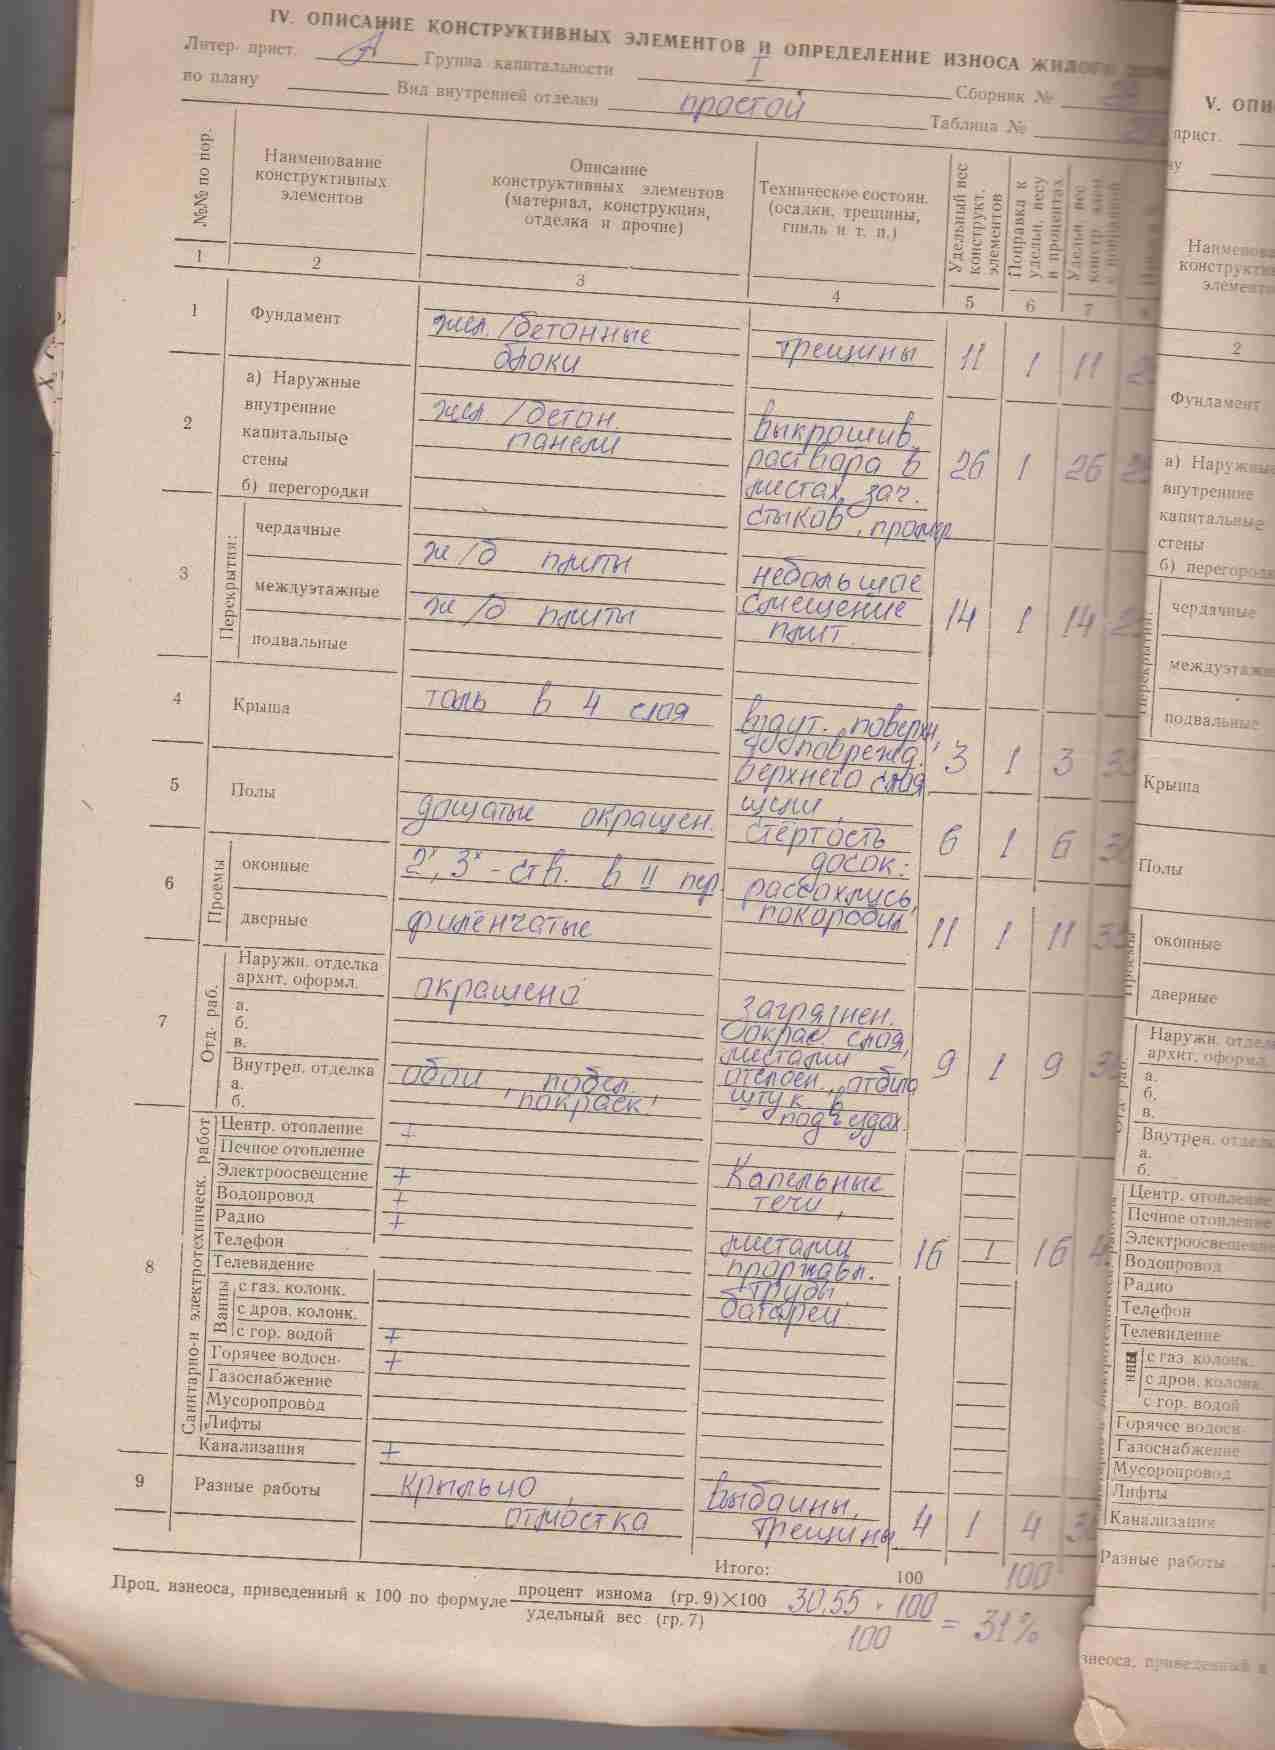 IV. ОПИСАНИЕ КОНСТРУКТИВНЫХ ЭЛЕМЕНТОВ И ОПРЕДЕЛЕНИЕ ИЗНОСА ЖИЛОГО
Литер. прист. А Группа капитальности I Сборник №
по плану Вид внутренней отделки простой Таблица №
№№ по пор.
Наименование конструктивных элементов
Описание конструктивных элементов (материал, конструкция, отделка и прочие)
Техническое состоян. (осадки, трещины, гниль и т. п.)
Удельный вес конструкт. элементов
Поправка к удельн. весу в процентах
Удельн вес констр. элем
1 2 3 4 5 6 7
1 Фундамент жел./бетонные трещины 11 1 11
блоки
2 а) Наружные
внутренние жел./бетон. выкрошив.
капитальные панели раствора в 26 1 26
стены местах зач.
б) перегородки стыков, промер
3 Перекрытия:
чердачные ж/б плиты небольшое
междуэтажные ж/б плиты смещение 14 1 14
подвальные плит.
4 Крыша толь в 4 слоя вздут. поверхн,
поврежд. 3 1 3
верхнего слоя
5 Полы дощатые окрашен. щели,
стёртость 6 1 6
досок:
6 Проемы
оконные 2х, 3х-ств. в II пер. рассохлись,
покоробил.
дверные филенчатые 11 1 11
7 Отд. раб.
Наружн. отделка
архит. оформл. окрашено загрязнен.
а. окрас. слоя,
б. местами 9 1 9
в. отслоен., отбита
Внутрен. отделка обои, побел. штук. в
а. покраск. подъездах.
б.
8 Санитарно-и электротехническ. работ
Центр. отопление +
Печное отопление
Электроосвещение + Капельные
Водопровод + течи,
Радио +
Телефон местами 16 1 16
Телевидение проржавл.
Ванны
с газ. колонк. трубы,
с дров. колонк. батареи.
с гор. водой +
Горячее водосн. +
Газоснабжение
Мусоропровод
Лифты
Канализация +
9 Разные работы крыльцо, выбоины,
отмостка трещины 4 1 4
Итого: 100 100
Проц. изнеоса, приведенный к 100 по формуле процент изнома (гр. 9)×100 30,55 × 100
удельный вес (гр. 7) 100 = 31%
V. ОПИ
прист.
Наименова
конструктив
элементо
2
Фундамент
а) Наружные
внутренние
капитальные
стены
б) перегородк
Перекрытия:
чердачные
междуэтажн
подвальные
Крыша
Полы
Проемы
оконные
дверные
Наружн. отделк
архит. оформл.
а.
б.
в.
Внутрен. отделк
а.
б.
Центр. отопление
Печное отопление
Электроосвещение
Водопровод
Радио
Телефон
Телевидение
с газ. колонк.
с дров. колонк.
с гор. водой
Горячее водосн.
Газоснабжение
Мусоропровод
Лифты
Канализация
Разные работы
знеоса, приведенный к